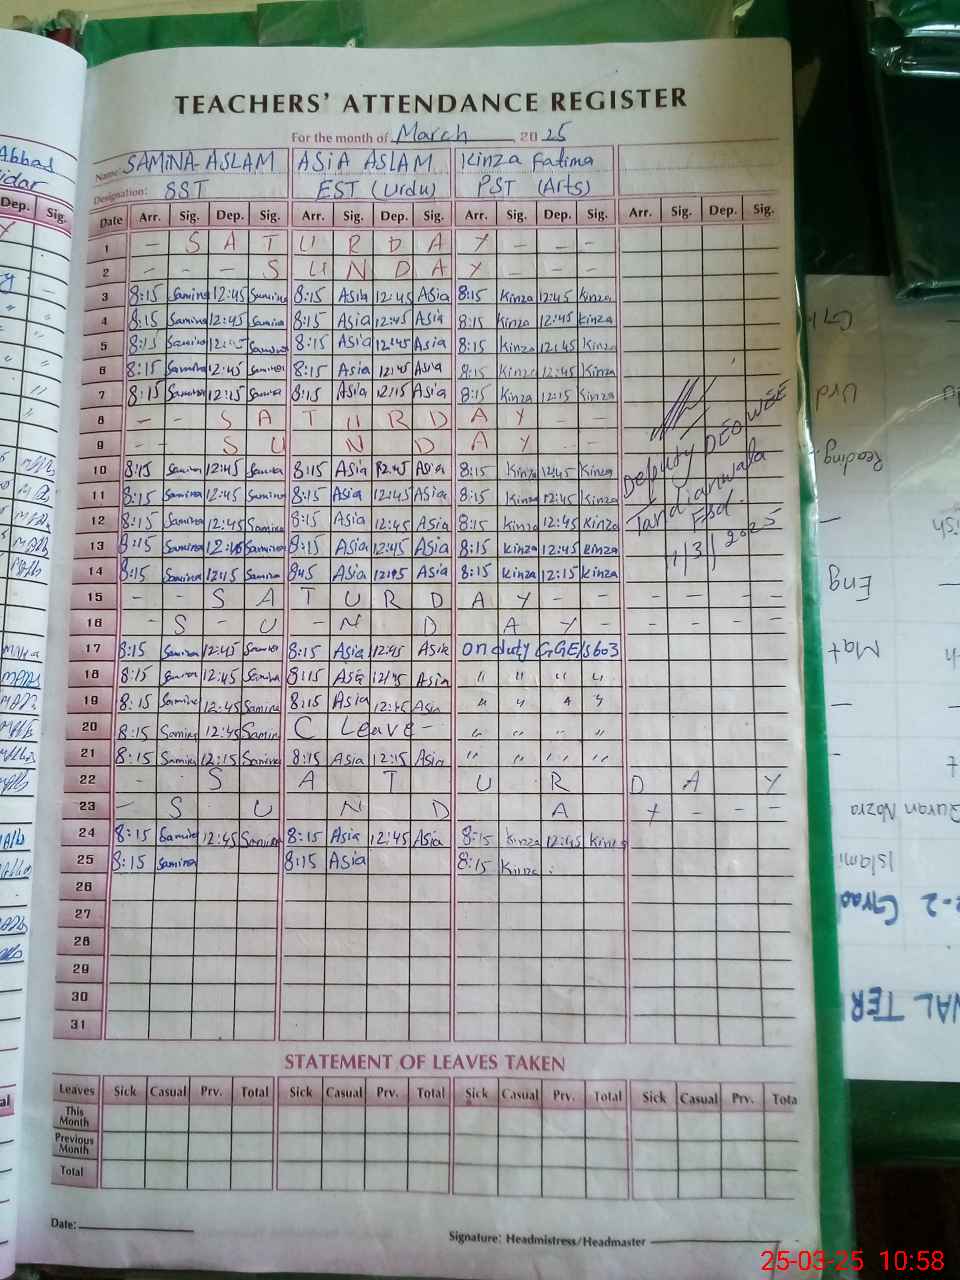 TEACHERS' ATTENDANCE REGISTER
For the month of March 2025
Name: SAMINA ASLAM ASIA ASLAM Kinza Fatima
Designation: SST EST (Urdu) PST (Arts)
Date Arr. Sig. Dep. Sig. Arr. Sig. Dep. Sig. Arr. Sig. Dep. Sig. Arr. Sig. Dep. Sig.
1 - S A T U R D A Y - - -
2 - - - S U N D A Y - - -
3 8:15 Samina 12:45 Samina 8:15 Asia 12:45 Asia 8:15 Kinza 12:45 Kinza
4 8:15 Samina 12:45 Samina 8:15 Asia 12:45 Asia 8:15 Kinza 12:45 Kinza
5 8:15 Samina 12:45 Samina 8:15 Asia 12:45 Asia 8:15 Kinza 12:45 Kinza
6 8:15 Samina 12:45 Samina 8:15 Asia 12:45 Asia 8:15 Kinza 12:45 Kinza
7 8:15 Samina 12:15 Samina 8:15 Asia 12:15 Asia 8:15 Kinza 12:15 Kinza
8 - - S A T U R D A Y -
9 - - S U N D A Y - -
10 8:15 Samina 12:45 Samina 8:15 Asia 12:45 Asia 8:15 Kinza 12:45 Kinza
11 8:15 Samina 12:45 Samina 8:15 Asia 12:45 Asia 8:15 Kinza 12:45 Kinza
12 8:15 Samina 12:45 Samina 8:15 Asia 12:45 Asia 8:15 Kinza 12:45 Kinza
13 8:15 Samina 12:45 Samina 8:15 Asia 12:45 Asia 8:15 Kinza 12:45 Kinza
14 8:15 Samina 12:15 Samina Asia Asia 8:15 Kinza 12:15 Kinza
Deputy DEO WEE
Tandlianwala
Fsd
15 - - S A T U R D A Y - - - - - -
16 - S - U - N D A Y - - - - -
17 8:15 Samina 12:45 Samina 8:15 Asia 12:45 Asia on duty GGE/S 603
18 8:15 Samina 12:45 Samina 8:15 Asia 12:45 Asia " " " "
19 8:15 Samina 12:45 Samina 8:15 Asia 12:45 Asia " " " "
20 8:15 Samina 12:45 Samina C Leave - " " " "
21 8:15 Samina 12:15 Samina 8:15 Asia 12:15 Asia " " " "
22 - - S A T U R D A Y
23 - S U N D A Y - - -
24 8:15 Samina 12:45 Samina 8:15 Asia 12:45 Asia 8:15 Kinza 12:45 Kinza
25 8:15 Samina 8:15 Asia 8:15 Kinza
26
27
28
29
30
31
STATEMENT OF LEAVES TAKEN
Leaves Sick Casual Prv. Total Sick Casual Prv. Total Sick Casual Prv. Total Sick Casual Prv. Tota
This Month
Previous Month
Total
Date:
Signature: Headmistress/Headmaster
25-03-25 10:58